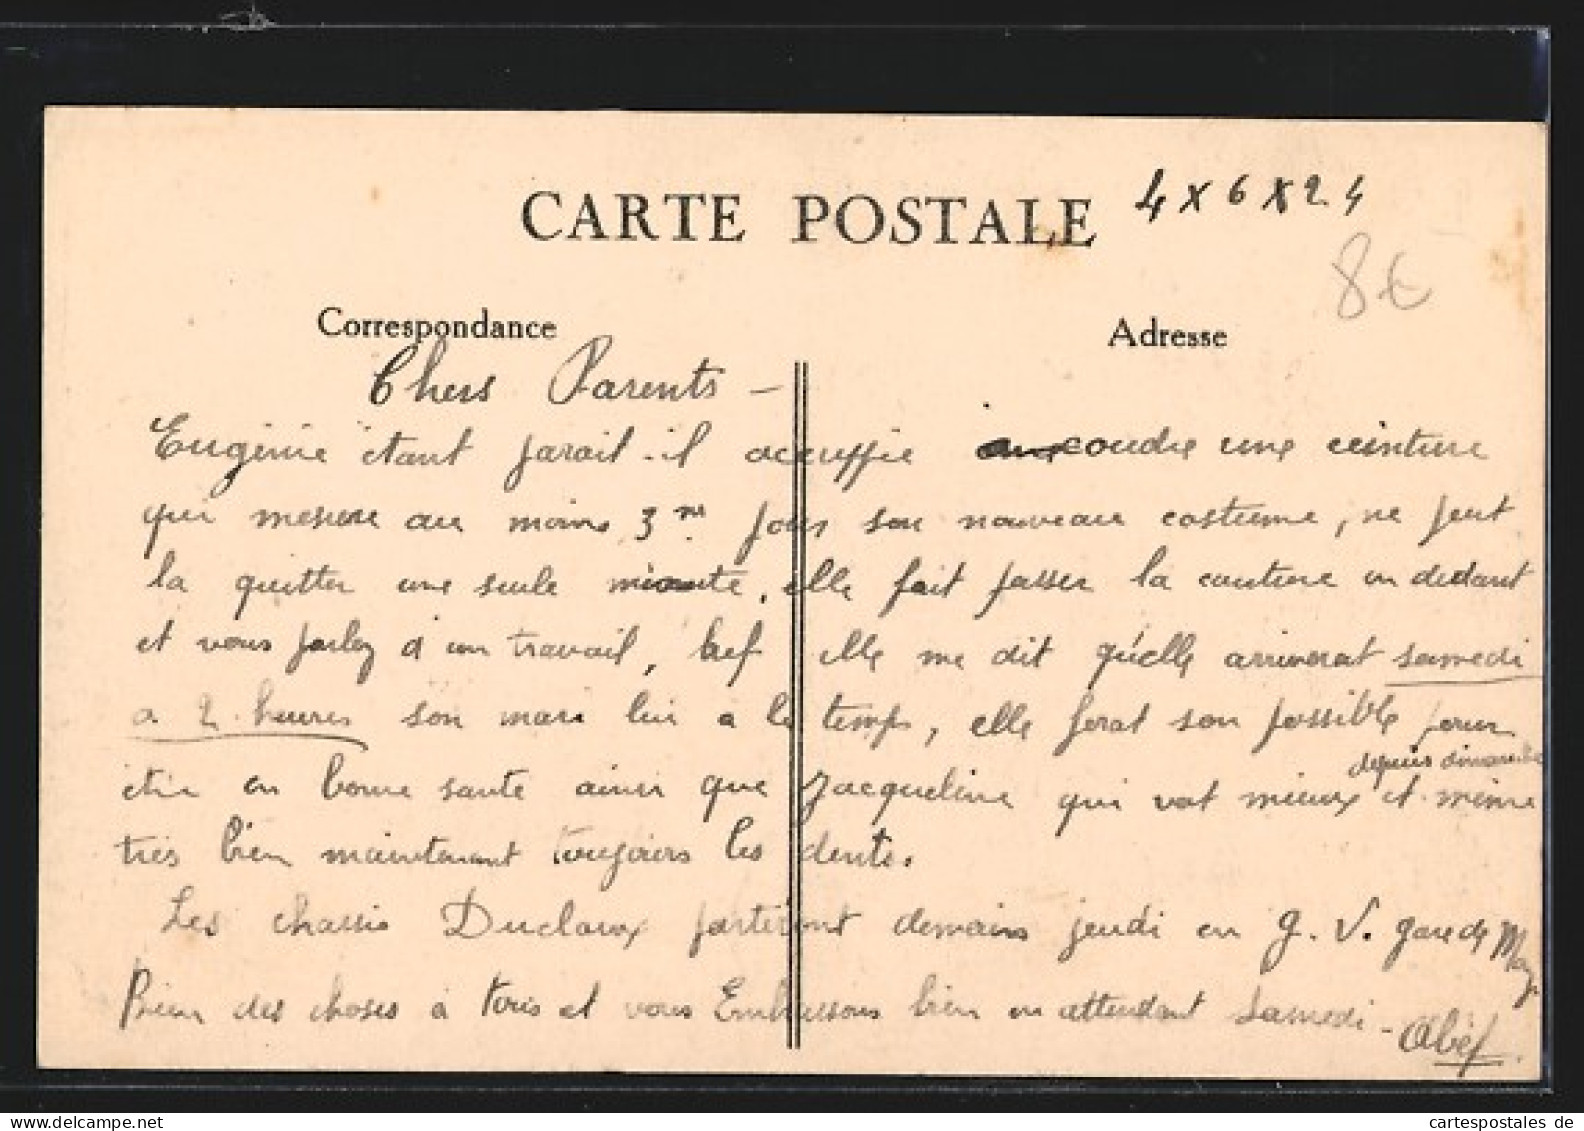 CARTE POSTALE 4 x 6 x 24
8€
Correspondance
Adresse
Chers Parents -
Eugénie étant parait-il occuppée coudre une ceinture
qui mesure au moins 3 m. pour son nouveau costume, ne peut
la quitter une seule minute, elle fait passer la couture en dedant
et vous parlez d'un travail, bref elle me dit qu'elle arriverat samedi
a 2 heures son mari lui a le temps, elle ferat son possible pour
depuis dimanche
etre en bonne santé ainsi que Jacqueline qui vat mieux et même
très bien maintenant toujours les dents.
Les chassis Duclaux partiront demain jeudi en G. V. gare de
Bien des choses à tous et vous Embrassons bien en attendant Samedi -
Abel
cartespostales de